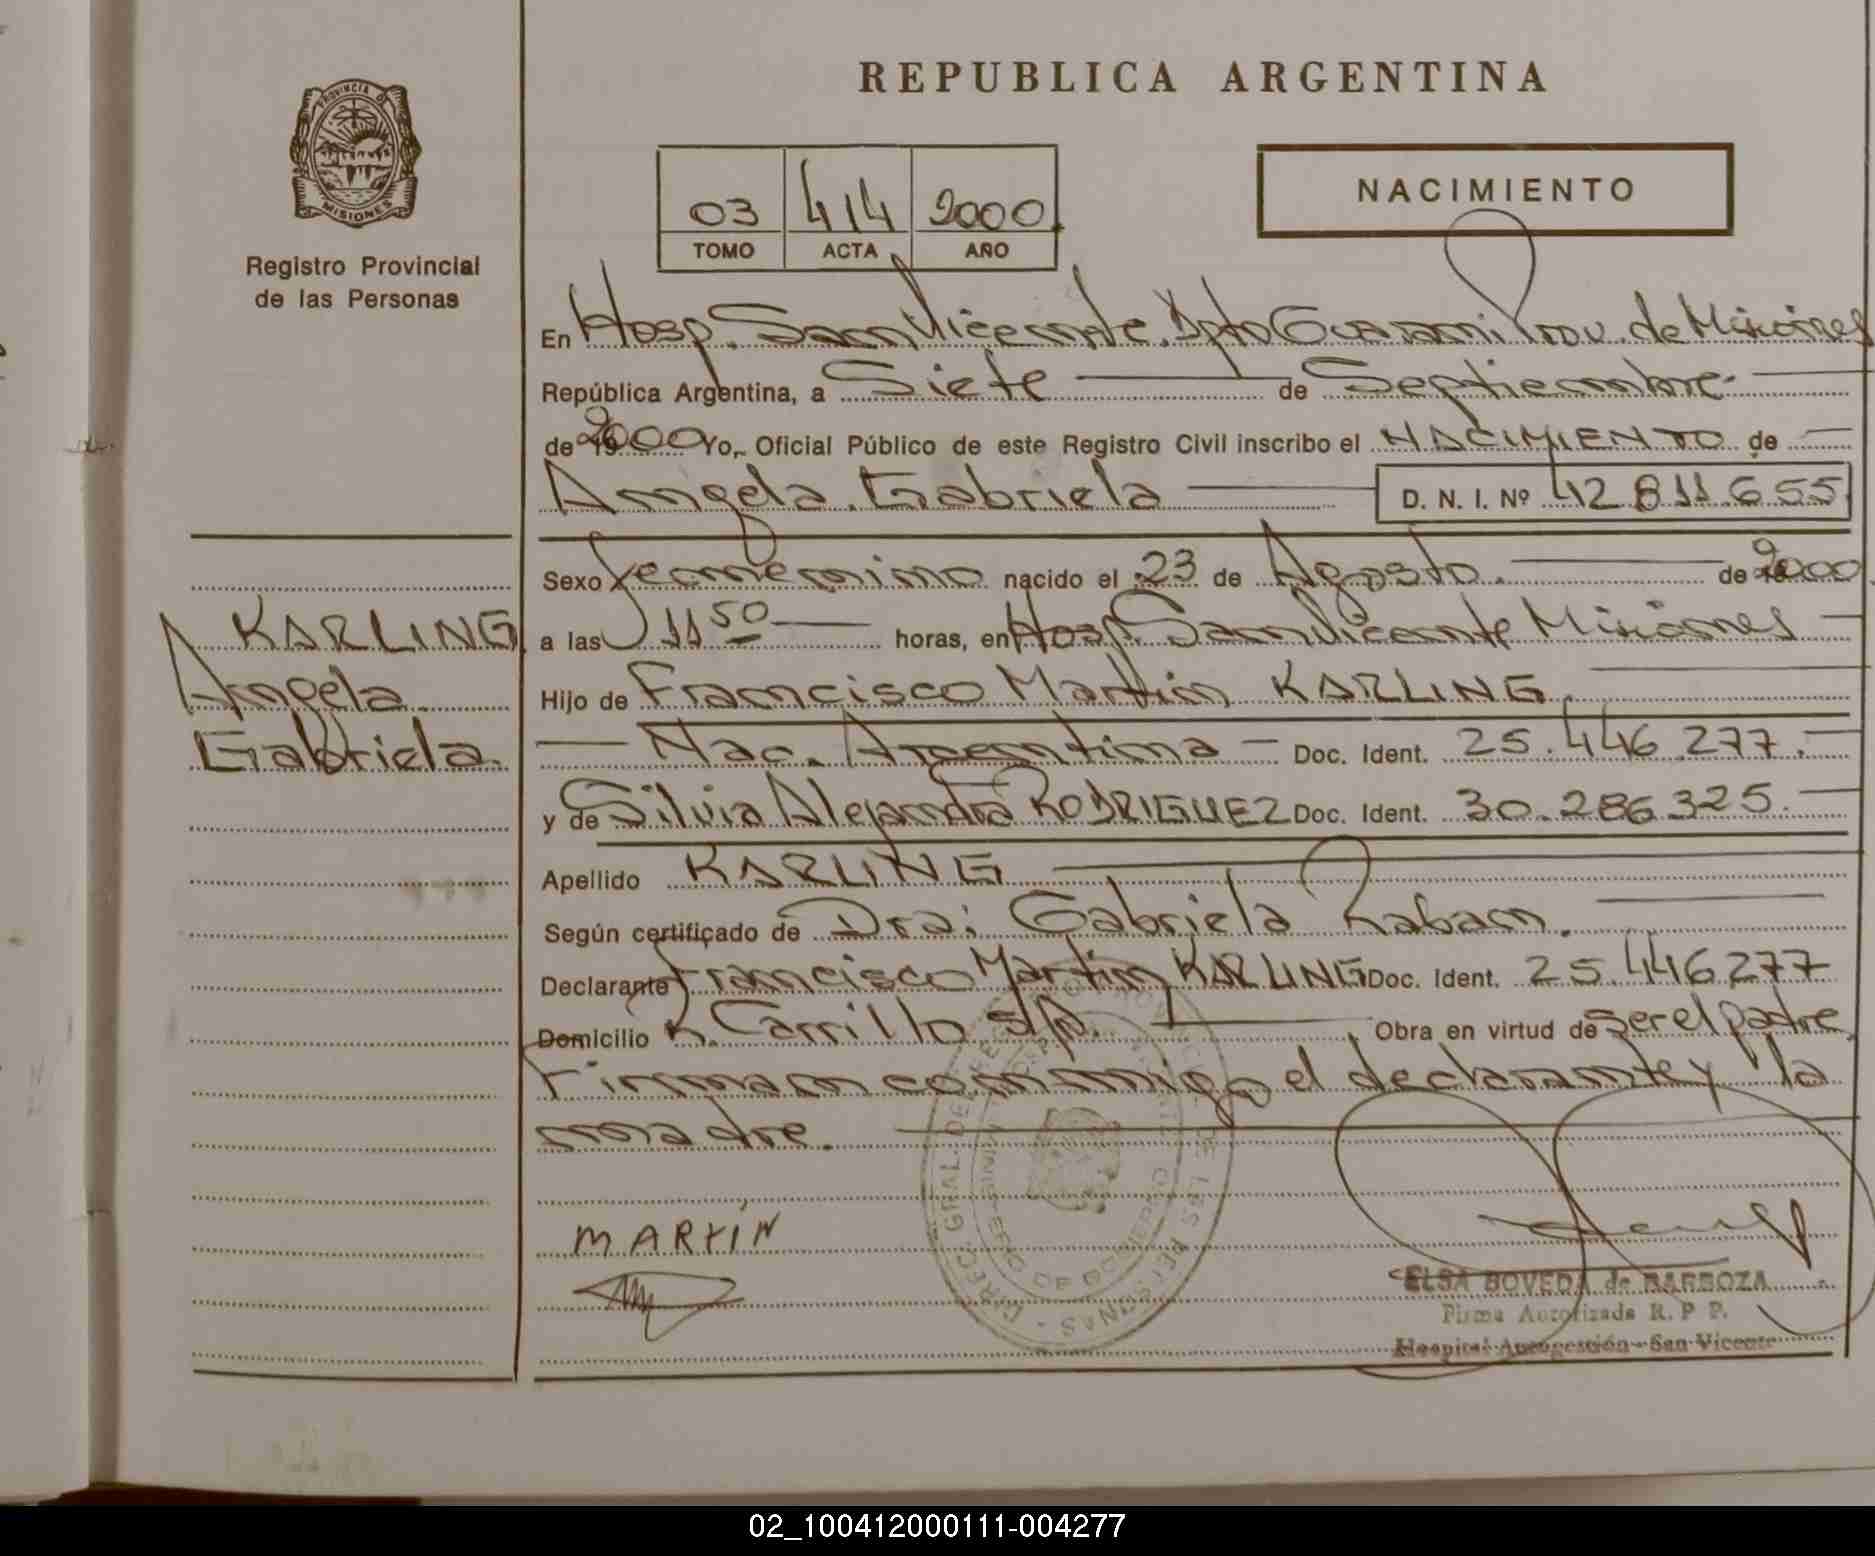 REPUBLICA ARGENTINA
PROVINCIA DE
MISIONES
Registro Provincial
de las Personas
03 414 2000
TOMO ACTA AÑO
NACIMIENTO
En Hosp. San Vicente. Dpto Guarani Prov. de Misiones
República Argentina, a Siete de Septiembre
de 2000 Yo, Oficial Público de este Registro Civil inscribo el NACIMIENTO de
Angela Gabriela D. N. I. Nº 42811655
Sexo femenino nacido el 23 de Agosto de 2000
a las 11 50 horas, en Hosp. San Vicente Misiones
Hijo de Francisco Martin KARLING
Nac. Argentina Doc. Ident. 25.446.277.
y de Silvia Alejandra RODRIGUEZ Doc. Ident. 30.286.325.
Apellido KARLING
Según certificado de Dra: Gabriela Raban.
Declarante Francisco Martin KARLING Doc. Ident. 25.446.277
Domicilio R. Carrillo s/n. Obra en virtud de ser el padre
Firman conmigo el declarante y la
madre.
KARLING
Angela
Gabriela
MARTÍN
DIREC. GRAL. DE LAS PERSONAS
MINISTERIO DE GOBIERNO
ELSA BOVEDA de BARBOZA
Firma Autorizada R. P. P.
Hospital Autogestión - San Vicente
02_100412000111-004277